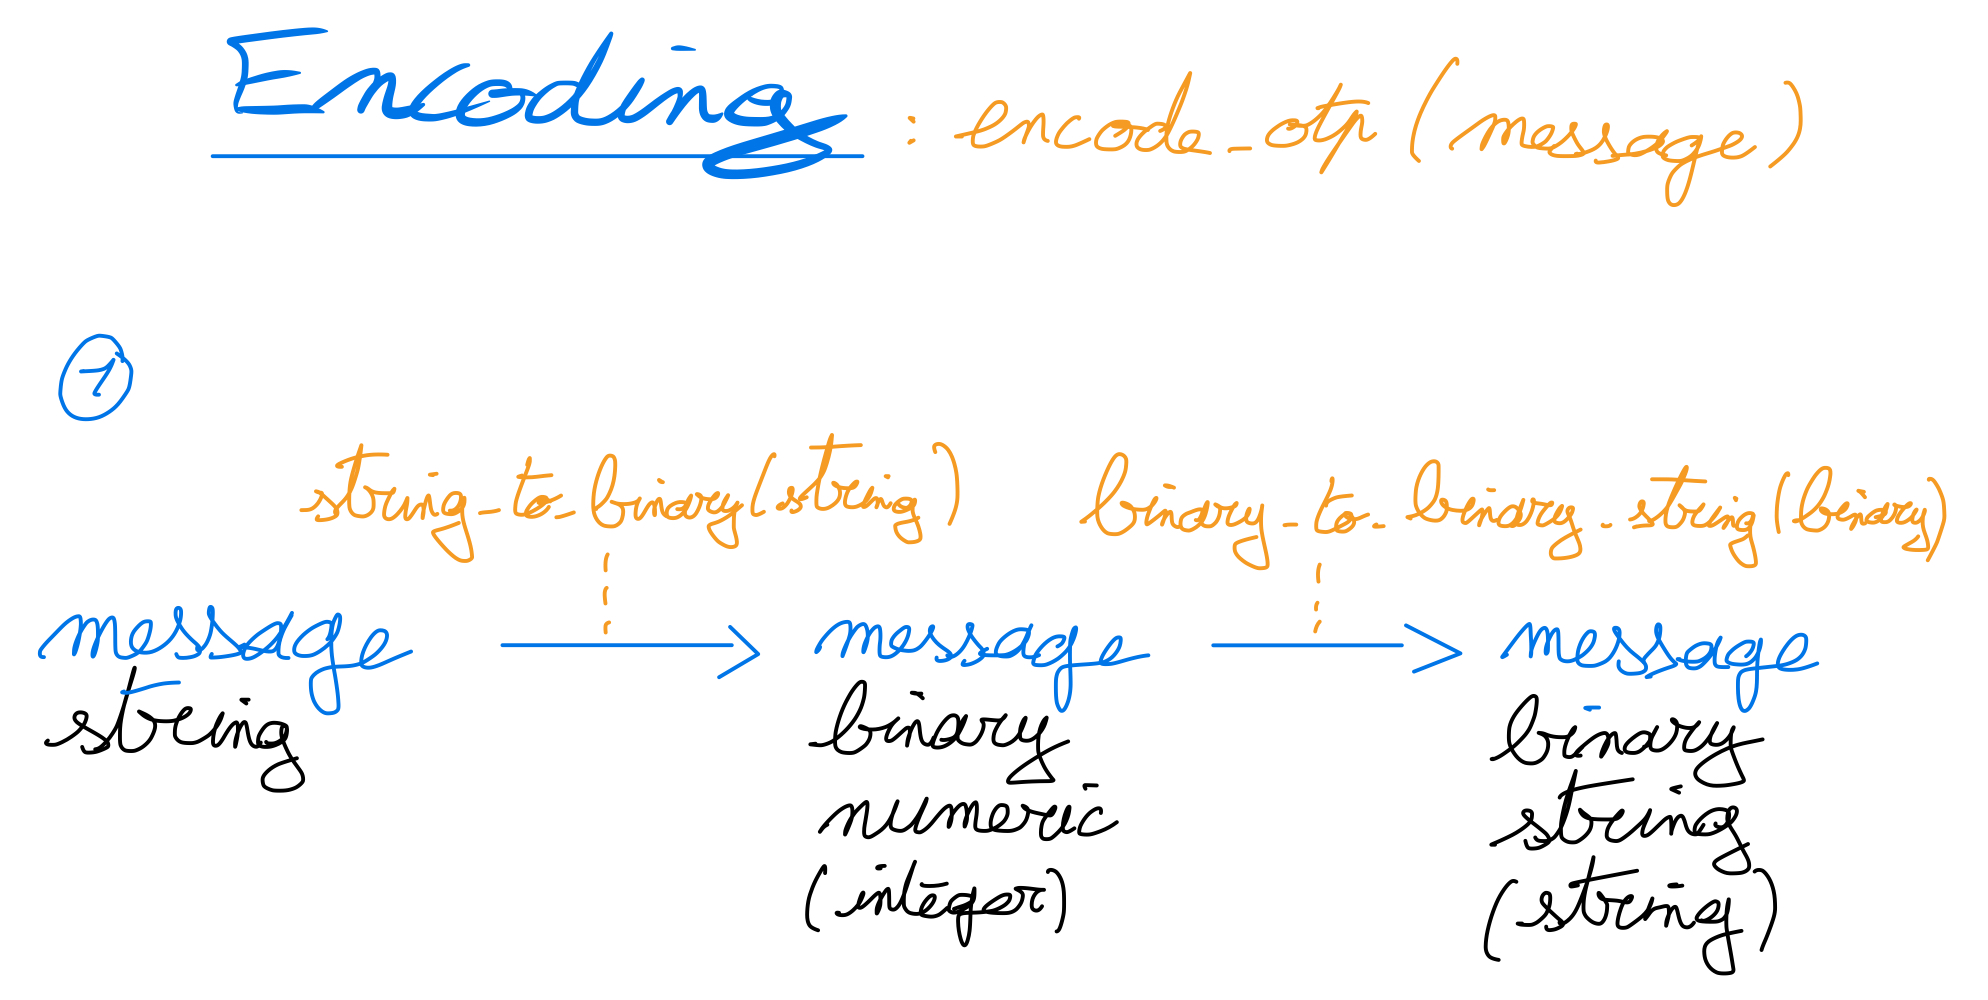 Encoding : encode_otp (message)
1
string_to_binary(string)
binary_to_binary_string(binary)
message
string
message
binary
numeric
(integer)
message
binary
string
(string)